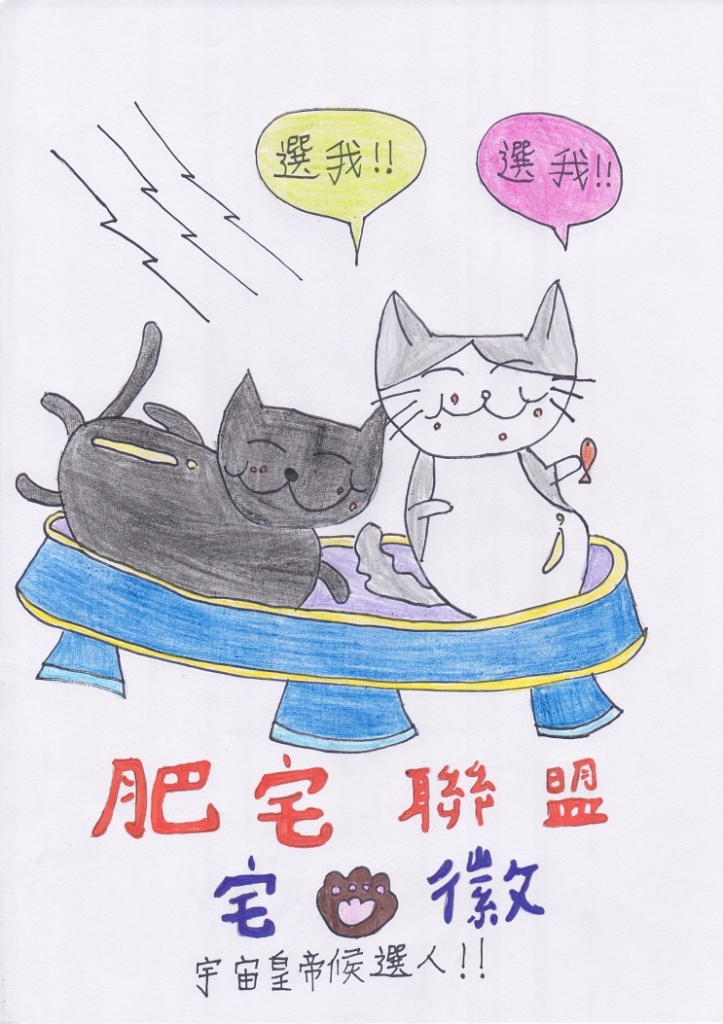 選我!!
選我!!
肥宅聯盟
宅徽
宇宙皇帝候選人!!